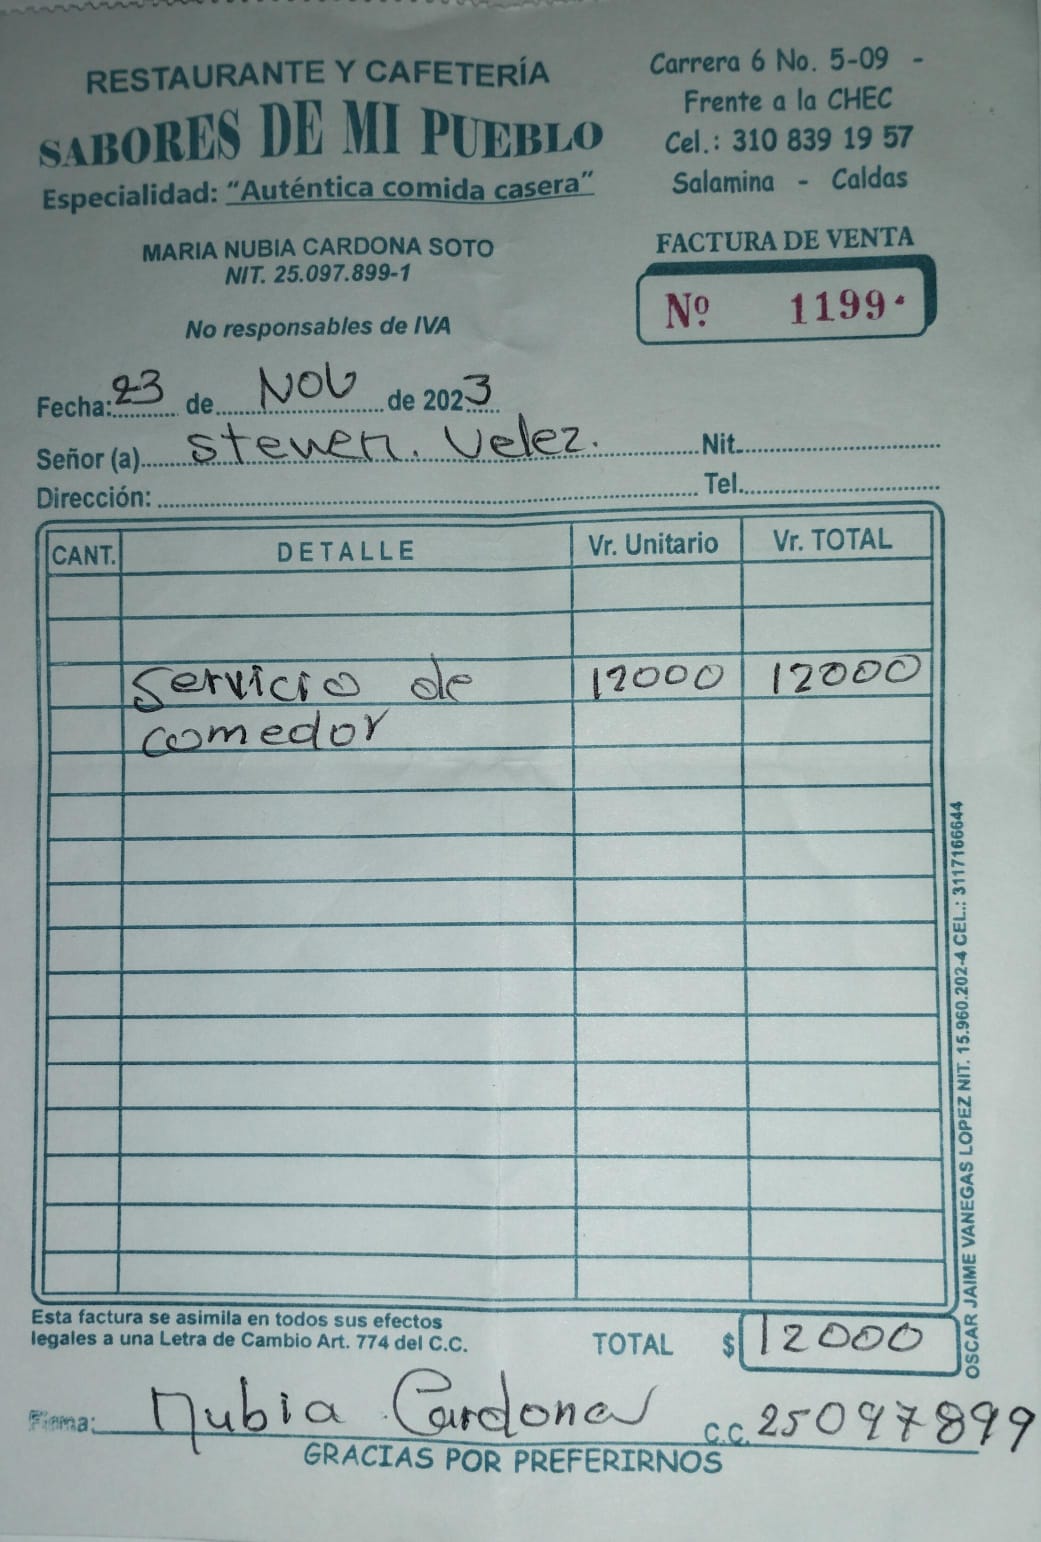 RESTAURANTE Y CAFETERÍA
SABORES DE MI PUEBLO
Especialidad: "Auténtica comida casera"
Carrera 6 No. 5-09 -
Frente a la CHEC
Cel.: 310 839 19 57
Salamina - Caldas
MARIA NUBIA CARDONA SOTO
NIT. 25.097.899-1
No responsables de IVA
FACTURA DE VENTA
Nº 1199
Fecha: 23 de Nov de 2023
Señor (a) Steven. Velez. Nit.
Dirección: Tel.
CANT. DETALLE Vr. Unitario Vr. TOTAL
Servicio de 12000 12000
comedor
OSCAR JAIME VANEGAS LOPEZ NIT. 15.960.202-4 CEL.: 3117166644
Esta factura se asimila en todos sus efectos
legales a una Letra de Cambio Art. 774 del C.C.
TOTAL $ 12000
Firma: Nubia Cardona C.C. 25097899
GRACIAS POR PREFERIRNOS